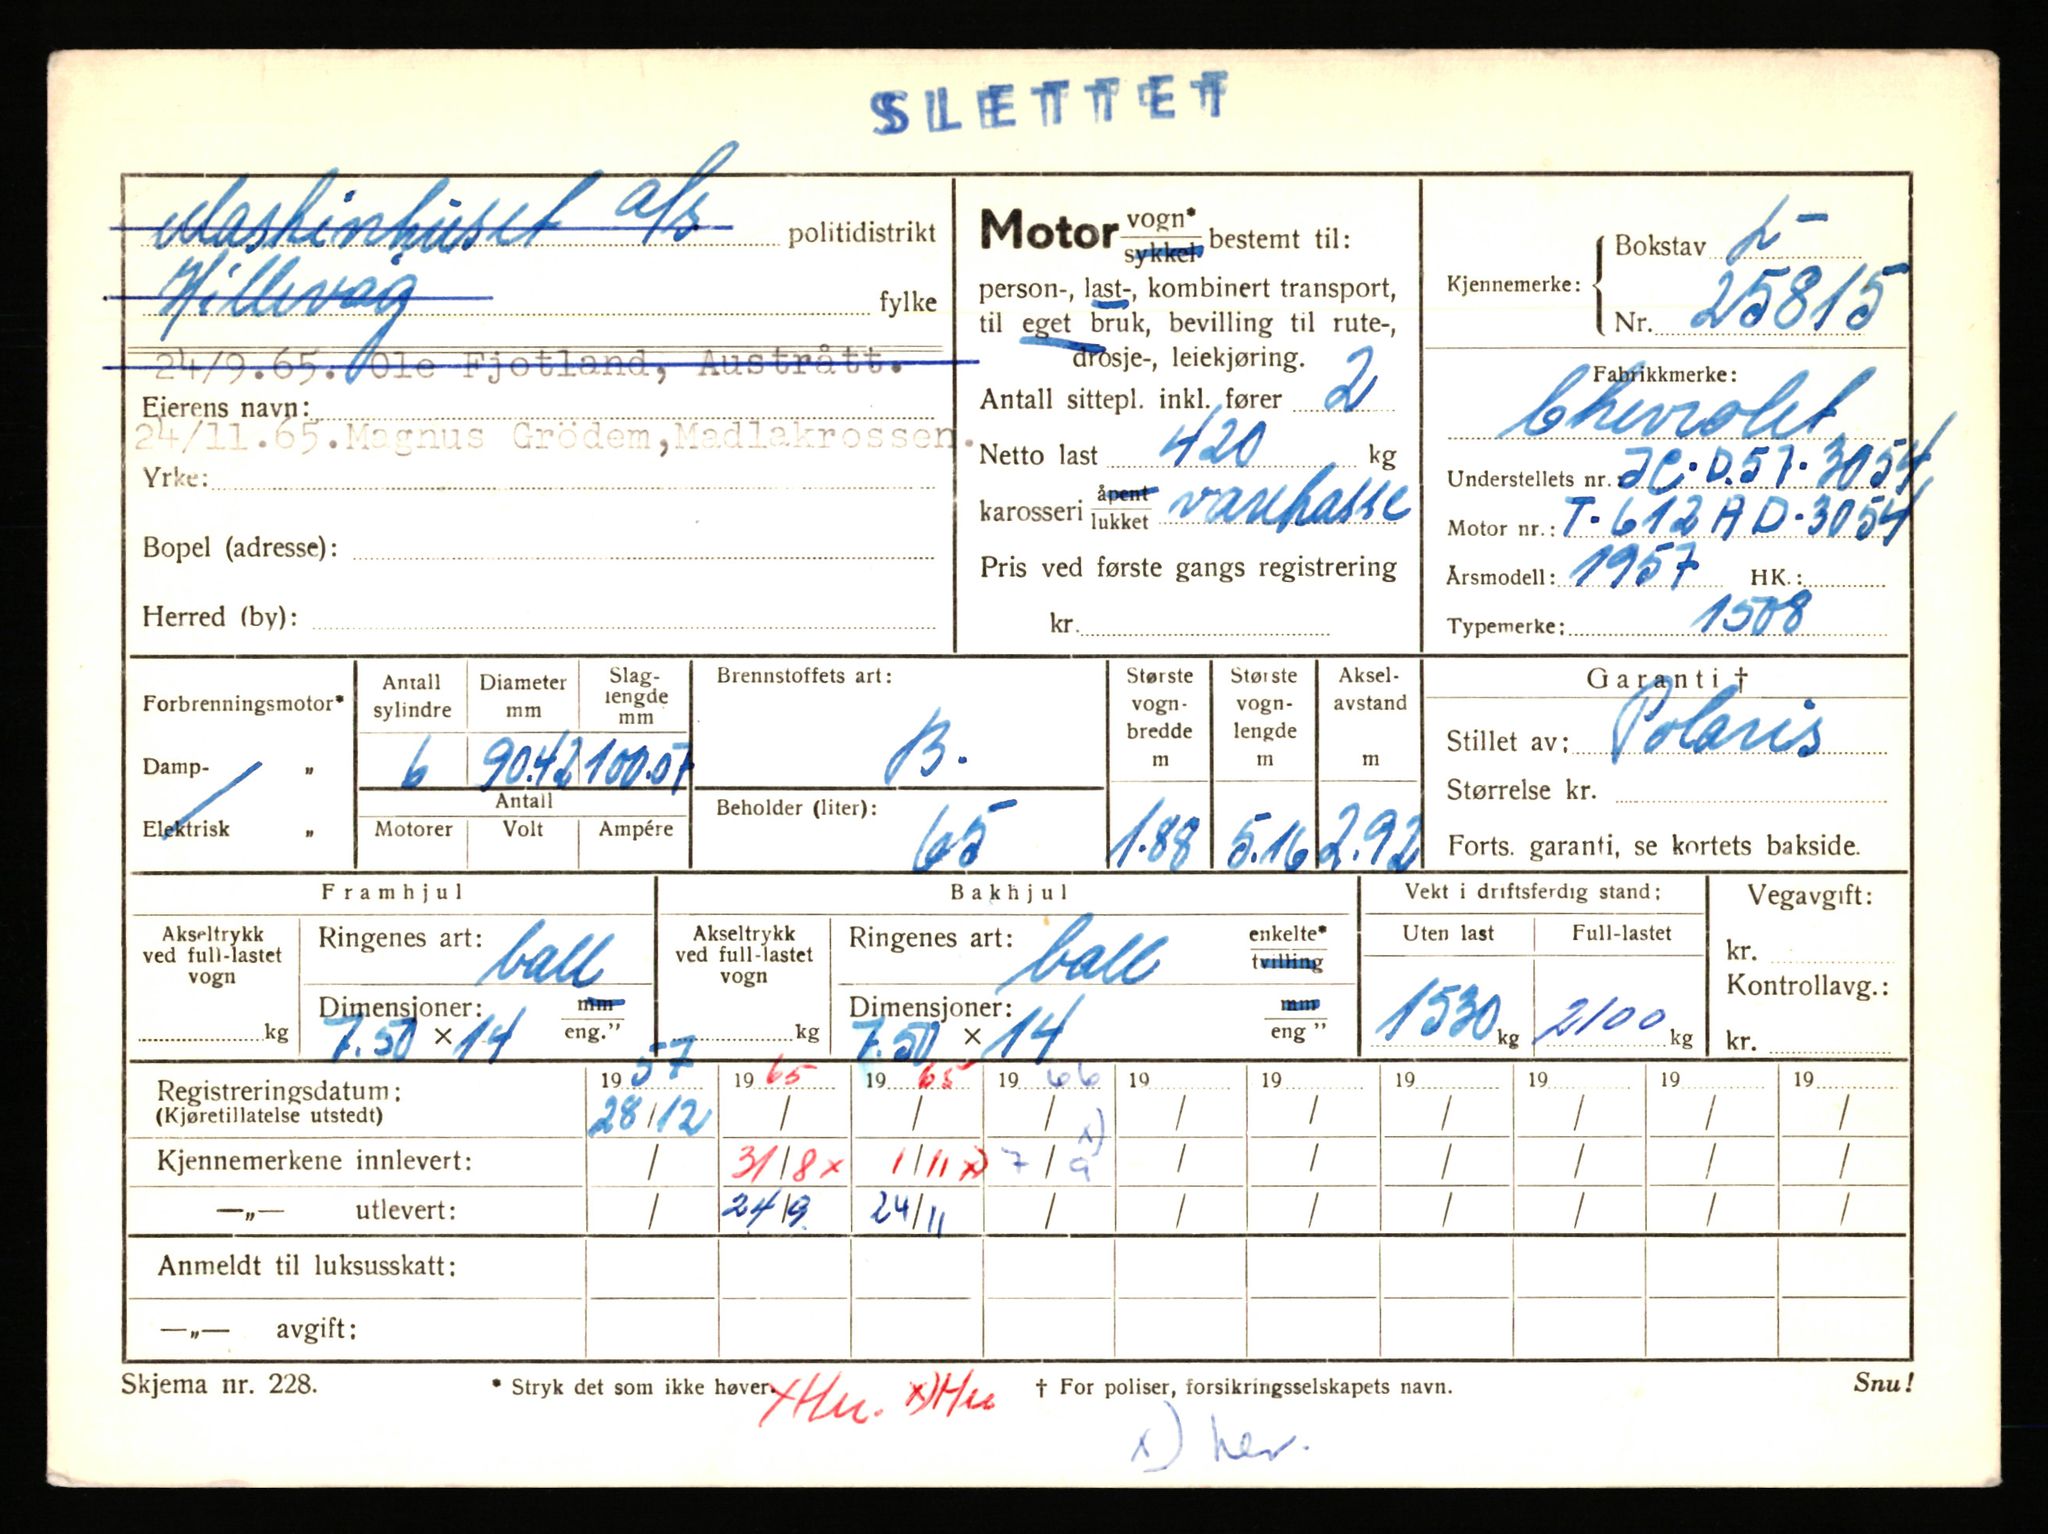 SLETTET
Maskinhuset a/s politidistrikt
Hillevåg fylke
24/9.65. Ole Fjotland, Austrått.
Eierens navn:
24/11.65.Magnus Grödem,Madlakrossen.
Yrke:
Bopel (adresse):
Herred (by):
Motor vogn* sykkel bestemt til:
person-, last-, kombinert transport,
til eget bruk, bevilling til rute-,
drosje-, leiekjøring.
Antall sittepl. inkl. fører 2
Netto last 420 kg
karosseri åpent lukket varekasse
Pris ved første gangs registrering
kr.
Kjennemerke: Bokstav L-
Nr. 25815
Fabrikkmerke:
Chevrolet
Understellets nr.: JC-D.57-3054
Motor nr.: T-612AD-3054
Årsmodell: 1957 HK.:
Typemerke: 1508
Forbrenningsmotor*
Damp- „
Elektrisk „
Antall sylindre
Diameter mm
Slag-lengde mm
6 90.42 100.07
Antall
Motorer Volt Ampére
Brennstoffets art:
B.
Beholder (liter):
65
Største vogn-bredde m
1.88
Største vogn-lengde m
5.16
Aksel-avstand m
2.92
Garanti †
Stillet av: Polaris
Størrelse kr.
Forts. garanti, se kortets bakside.
Framhjul
Akseltrykk ved full-lastet vogn
kg
Ringenes art: ball
Dimensjoner: mm
7.50 × 14 eng.”
Bakhjul
Akseltrykk ved full-lastet vogn
kg
Ringenes art: ball enkelte* tvilling
Dimensjoner: mm
7.50 × 14 eng”
Vekt i driftsferdig stand:
Uten last Full-lastet
1530 kg 2100 kg
Vegavgift:
kr.
Kontrollavg.:
kr.
Registreringsdatum: 19 57 19 65 19 65 19 66 19 19 19 19 19 19
(Kjøretillatelse utstedt) 28/12 / / / / / / / / /
Kjennemerkene innlevert: / 31/8 x 1/11 x) 7/9 x) / / / / / /
—„— utlevert: / 24/9. 24/11 / / / / / / /
Anmeldt til luksusskatt:
—„— avgift:
Skjema nr. 228. * Stryk det som ikke høver. † For poliser, forsikringsselskapets navn. Snu!